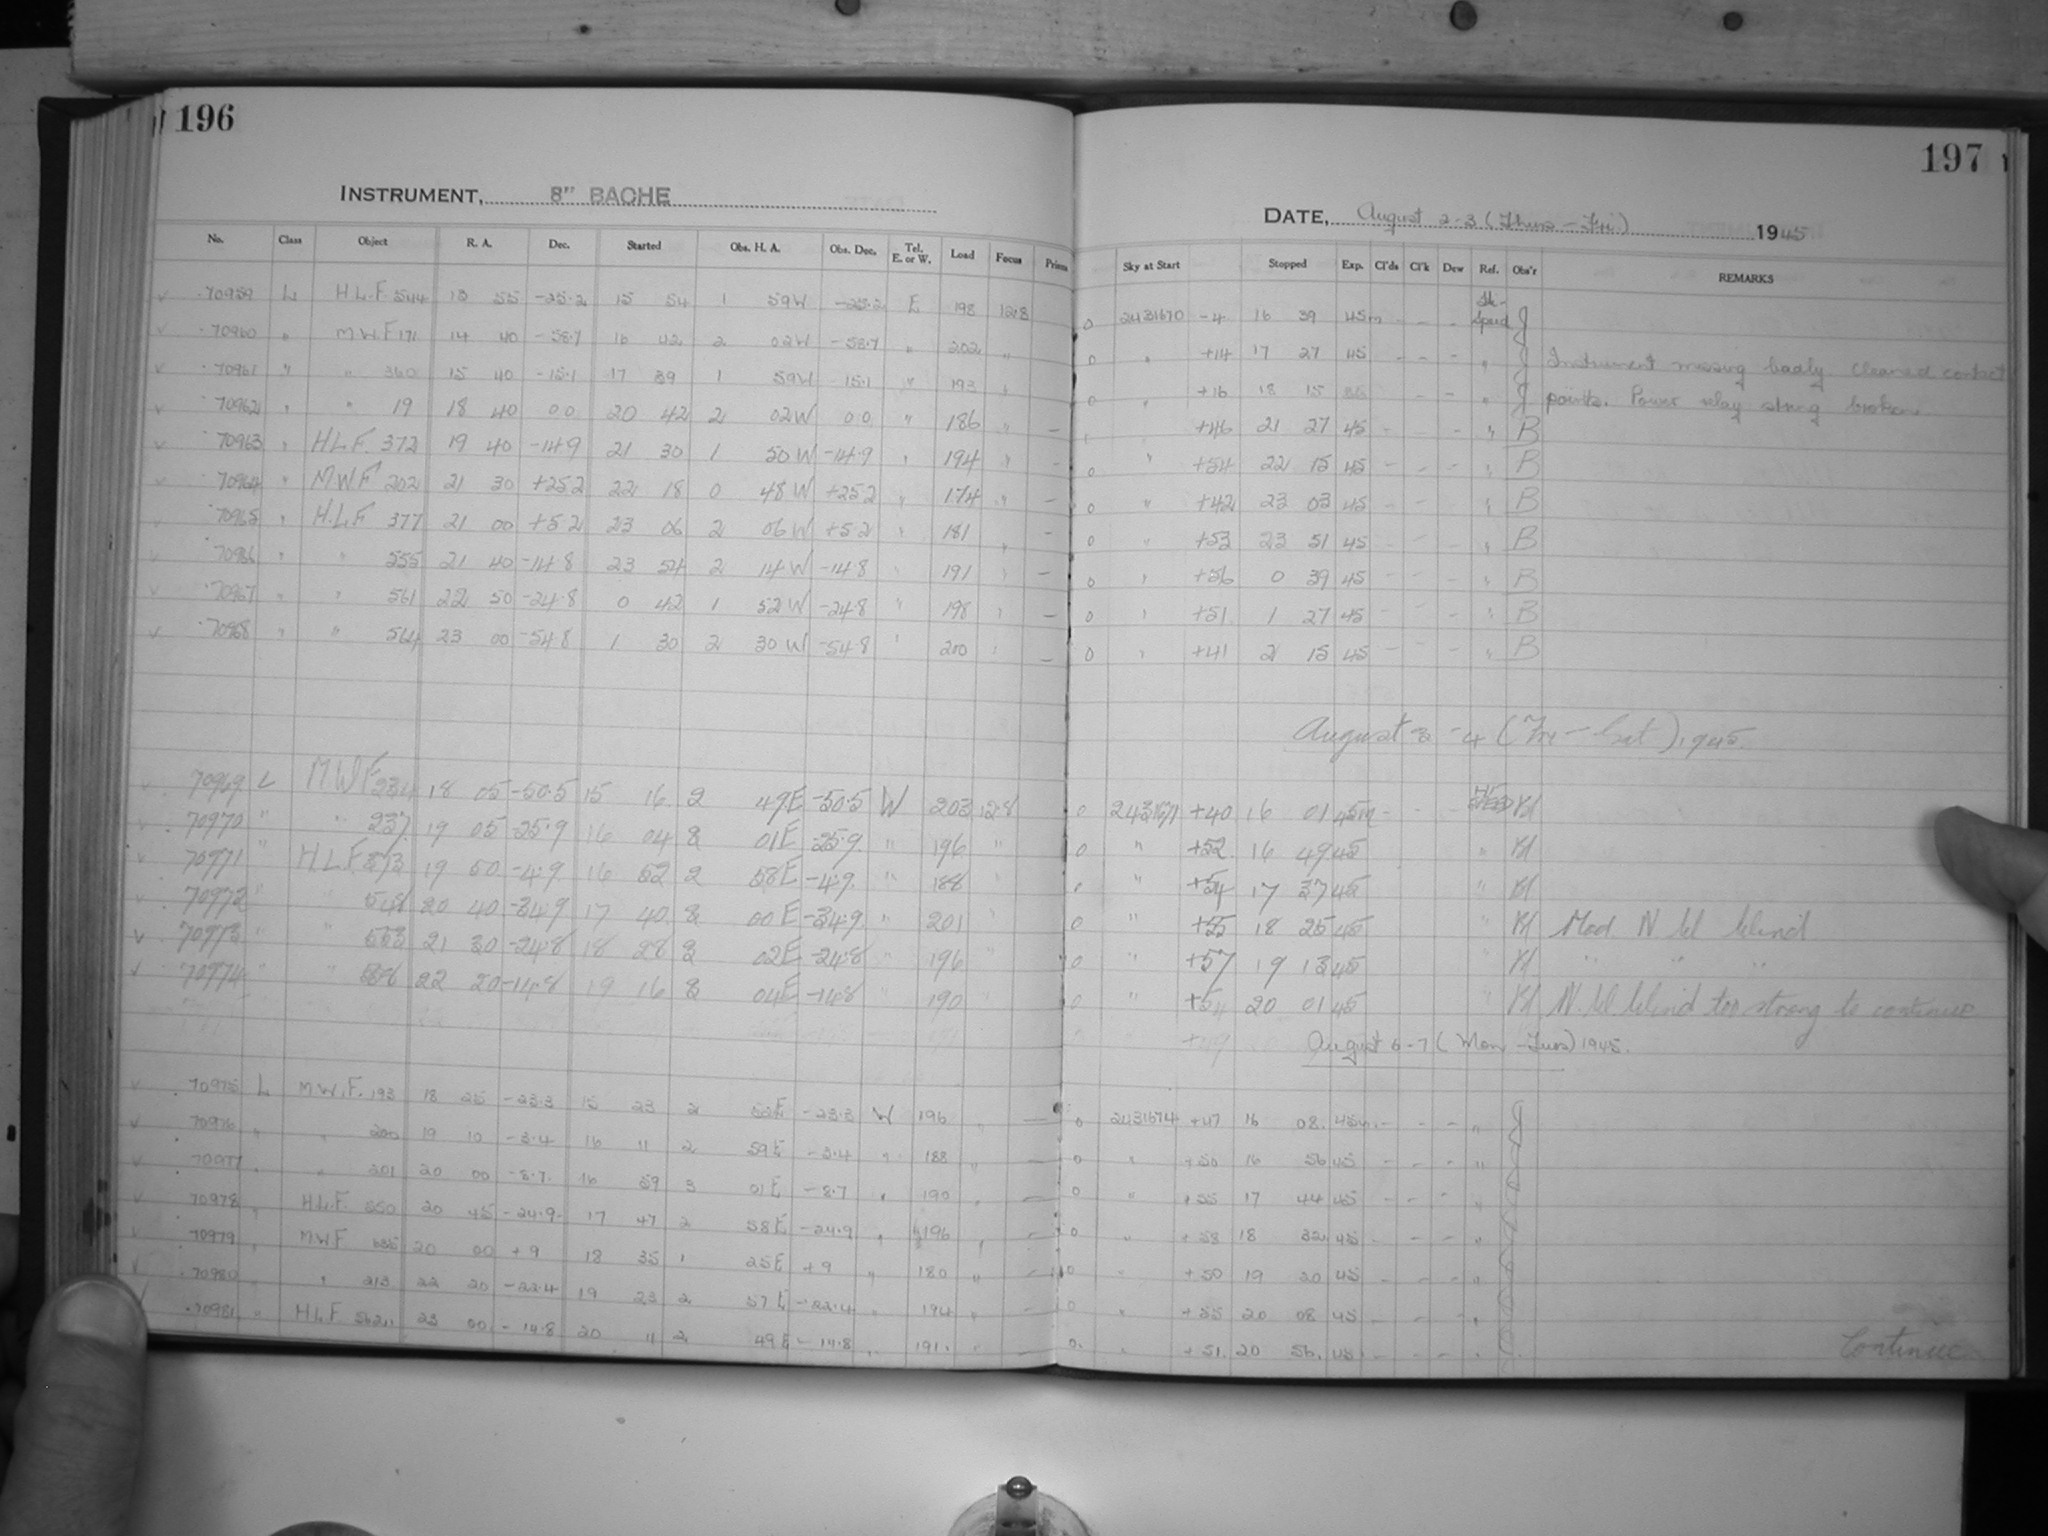 196
INSTRUMENT, 8" BACHE
No. Class Object R. A. Dec. Started Obs. H. A. Obs. Dec. Tel. E. or W. Load Focus Prism
70959 L H.L.F 544 13 55 -25.2 15 54 1 59W -25.2 E 198 12.8
70960 " M.W.F 171 14 40 -58.7 16 42 2 02W -58.7 " 202 "
70961 " " 360 15 40 -15.1 17 39 1 59W -15.1 " 193 "
70962 " " 19 18 40 00 20 42 2 02W 00 " 186 " -
70963 " H.L.F. 372 19 40 -14.9 21 30 1 50W -14.9 " 194 " -
70964 " MWF 202 21 30 +25.2 22 18 0 48W +25.2 " 174 " -
70965 " H.L.F 377 21 00 +5.2 23 06 2 06W +5.2 " 181 " -
70966 " " 555 21 40 -14.8 23 54 2 14W -14.8 " 191 " -
70967 " " 561 22 50 -24.8 0 42 1 52W -24.8 " 198 " -
70968 " " 564 23 00 -54.8 1 30 2 30W -54.8 " 200 " -
70969 L MWF 234 18 05 -50.5 15 16 2 49E -50.5 W 203 12.8
70970 " " 237 19 05 -25.9 16 04 3 01E -25.9 " 196 "
70971 " H.L.F. 373 19 50 -4.9 16 52 2 58E -4.9 " 188 "
70972 " " 548 20 40 -34.9 17 40 3 00E -34.9 " 201 "
70973 " " 553 21 30 -24.8 18 28 3 02E -24.8 " 196 "
70974 " " 22 20 -14.8 19 16 3 04E -14.8 " 190 "
70975 L M.W.F. 193 18 25 -23.3 15 23 2 52E -23.3 W 196 " -
70976 " " 200 19 10 -3.4 16 11 2 59E -3.4 " 188 " -
70977 " " 201 20 00 -8.7 16 59 3 01E -8.7 " 190 " -
70978 " H.L.F. 550 20 45 -24.9 17 47 2 58E -24.9 " 196 " -
70979 " M.W.F 20 00 +9 18 35 1 25E +9 " 180 " -
70980 " " 213 22 20 -22.4 19 23 2 57E -22.4 " 194 " -
70981 " H.L.F 562 23 00 -14.8 20 11 2 49E -14.8 " 191 " -
197
DATE, August 2-3 (Thurs - Fri) 1945
Sky at Start Stopped Exp. Cl'ds Cl'k Dew Ref. Obs'r REMARKS
0 2431670 -4 16 39 45m - - - Speed J
0 " +14 17 27 45 - - - " J Instrument missing badly. Cleaned contact
0 " +16 18 15 - - " J points. Power relay string broken
" +46 21 27 45 - - - " B
0 " +54 22 15 45 - - - " B
0 " +42 23 03 45 - - " B
0 " +53 23 51 45 - - - " B
0 " +56 0 39 45 - - - " B
0 " +51 1 27 45 - - - " B
0 " +41 2 15 45 - - - " B
August 3-4 (Fri - Sat), 1945.
0 2431671 +40 16 01 45m - - -
0 " +52 16 49 45 "
" +54 17 37 45 "
0 " +55 18 25 45 " Mod. N'ld Wind
0 " +57 19 13 45 " " " "
0 " +54 20 01 45 " N. ld Wind too strong to continue
August 6-7 (Mon - Tues) 1945.
0 2431674 +47 16 08 45m - - - " J
0 " +50 16 56 45 - - - "
0 " +55 17 44 45 - - - "
0 " +58 18 32 45 - - - "
0 " +50 19 20 45 - - - "
0 " +55 20 08 45 - - - "
0 " +51 20 56 45 - - - "
Continue